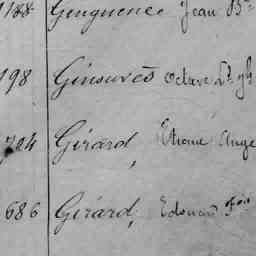 1188 Ginguené Jean Bte
198 Ginouvès Octave
704 Girard, Etienne Ange
686 Girard, Edouard Fois